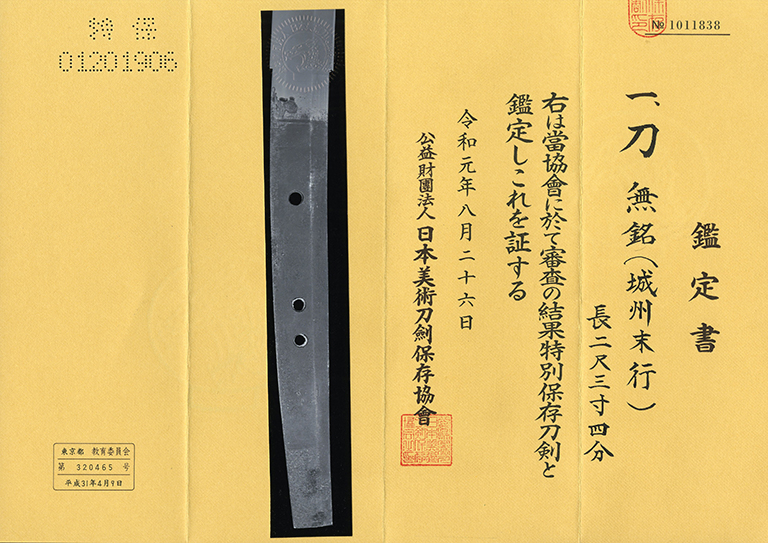 № 1011838
鑑定書
一、刀 無銘(城州末行)
長二尺三寸四分
右は當協會に於て審査の結果特別保存刀剣と
鑑定しこれを証する
令和元年八月二十六日
公益財團法人 日本美術刀劍保存協會
特保
01201906
東京都 教育委員会
第 320465 号
平成31年4月9日